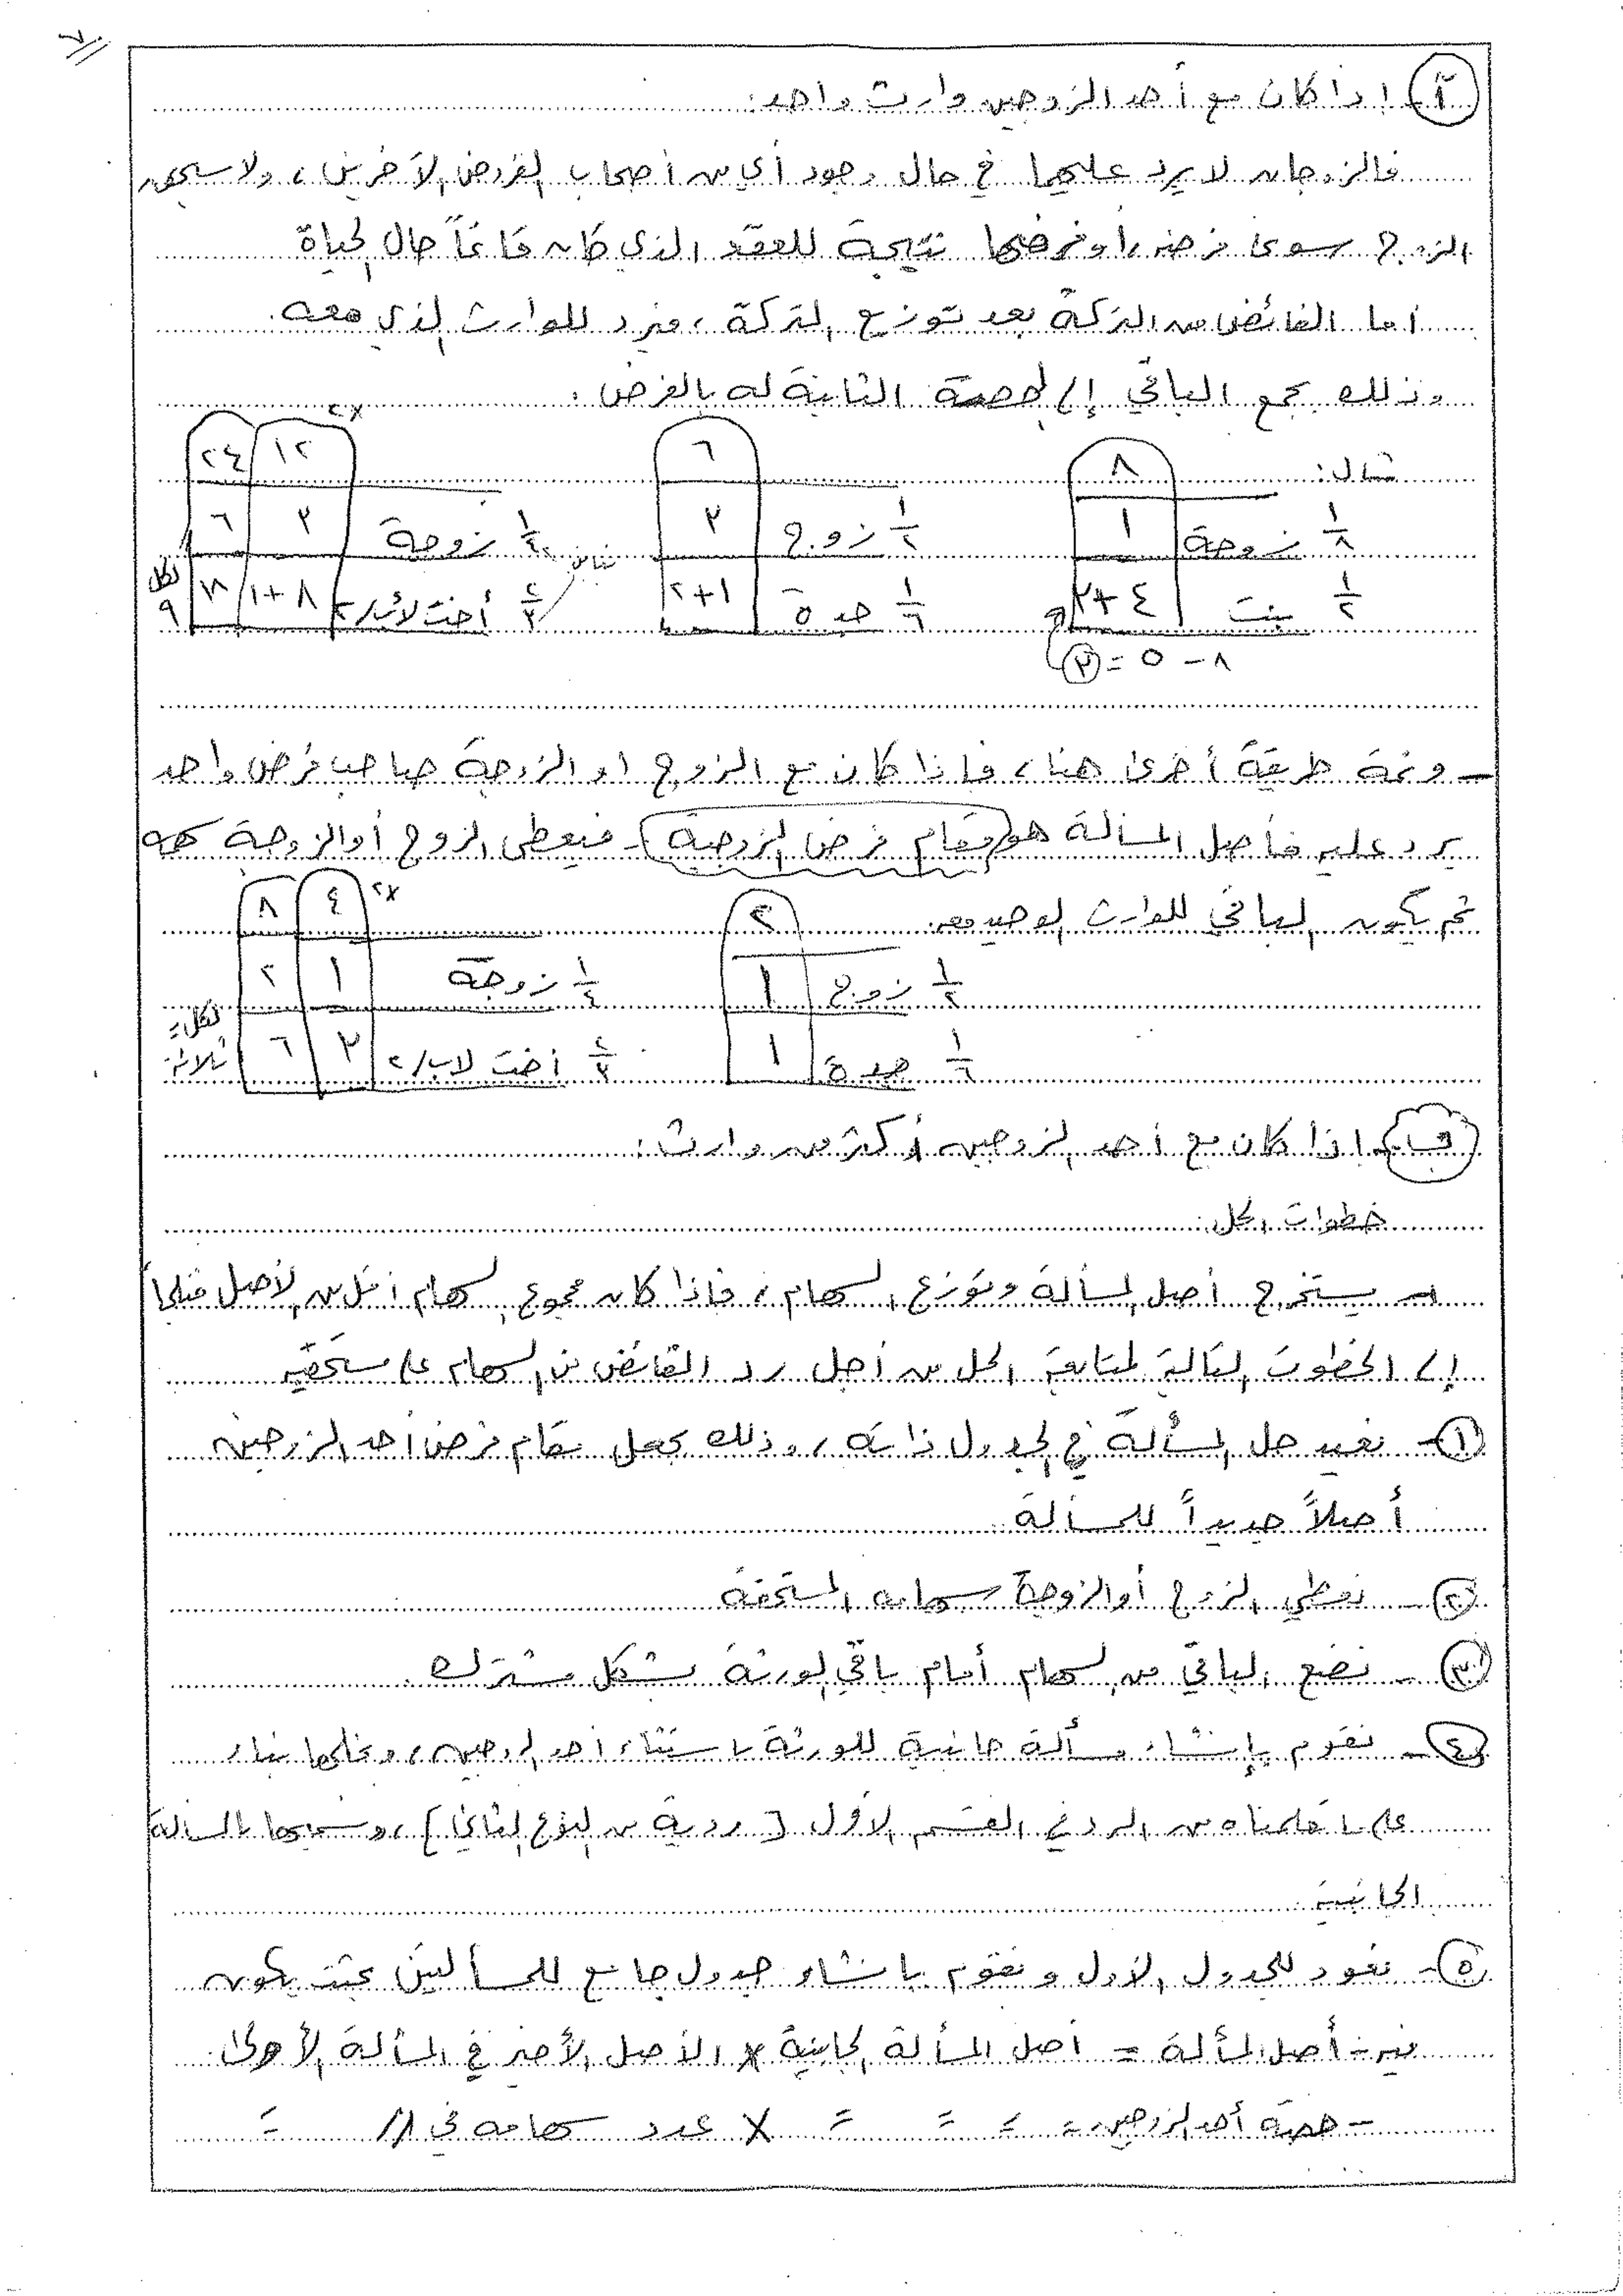 أ - اذا كان مع أحد الزوجين وارث واحد:
فالزوجان لا يرد عليهما في حال وجود أي من أصحاب الفروض الآخرين، ولا يستحق
الزوج سوى فرضه، أو فرضها نتيجة للعقد الذي كان قائماً حال الحياة
أما الفائض من التركة بعد توزيع التركة، فيرد للوارث الذي معه.
وذلك بجمع الباقي إلى الحصة الثابتة له بالفرض.
مثال:
٨
١/٨ زوجة ١
١/٢ بنت ٤+٣
٨ - ٥ = ٣
٦
١/٢ زوج ٣
١/٦ جدة ١+٢
١٢ ×٢ ٢٤
١/٤ زوجة ٣ ٦
٢/٣ أخت لأب/٢ ٨+١ ١٨ لكل ٩
تباين
- وثمة طريقة أخرى هنا، فإذا كان مع الزوج او الزوجة صاحب فرض واحد
يرد عليه فأصل المسألة هو (مقام فرض الزوجية) - فيعطى الزوج أو الزوجة سهمه
ثم يكون الباقي للوارث الوحيد معه.
٢
١/٢ زوج ١
١/٦ جدة ١
٤ ×٢ ٨
١/٤ زوجة ١ ٢
٢/٣ أخت لأب/٢ ٣ ٦ لكل: ثلاثة
ب - اذا كان مع أحد الزوجين أكثر من وارث:
خطوات الحل:
- يستخرج أصل المسألة وتوزع السهام، فاذا كان مجموع السهام اقل من الأصل فنلجأ
إلى الخطوات التالية لمتابعة الحل من أجل رد الفائض من السهام على مستحقيه
١- نعيد حل المسألة في الجدول ذاته، وذلك بجعل مقام فرض احد الزوجين
أصلاً جديداً للمسألة
٢- نعطي الزوج أو الزوجة سهامه المستحقة
٣- نضع الباقي من السهام أمام باقي الورثة بشكل مشترك.
٤- نقوم بإنشاء مسألة جانبية للورثة باستثناء أحد الزوجين، ونحلها بناء
على ما تعلمناه من الرد في القسم الأول [ردية من النوع الثاني]، ونسميها بالمسألة
الجانبية
٥- نعود للجدول الأول ونقوم بانشاء جدول جامع للمسألتين بحيث يكون
فيه: - أصل المسألة = أصل المسألة الجانبية × الأصل الأخير في المسألة الأولى
- حصة أحد الزوجين = = = = × عدد سهامه في // =